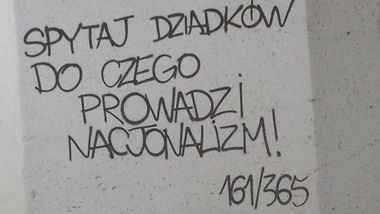 SPYTAJ DZIADKÓW
DO CZEGO
PROWADZI
NACJONALIZM!
161/365